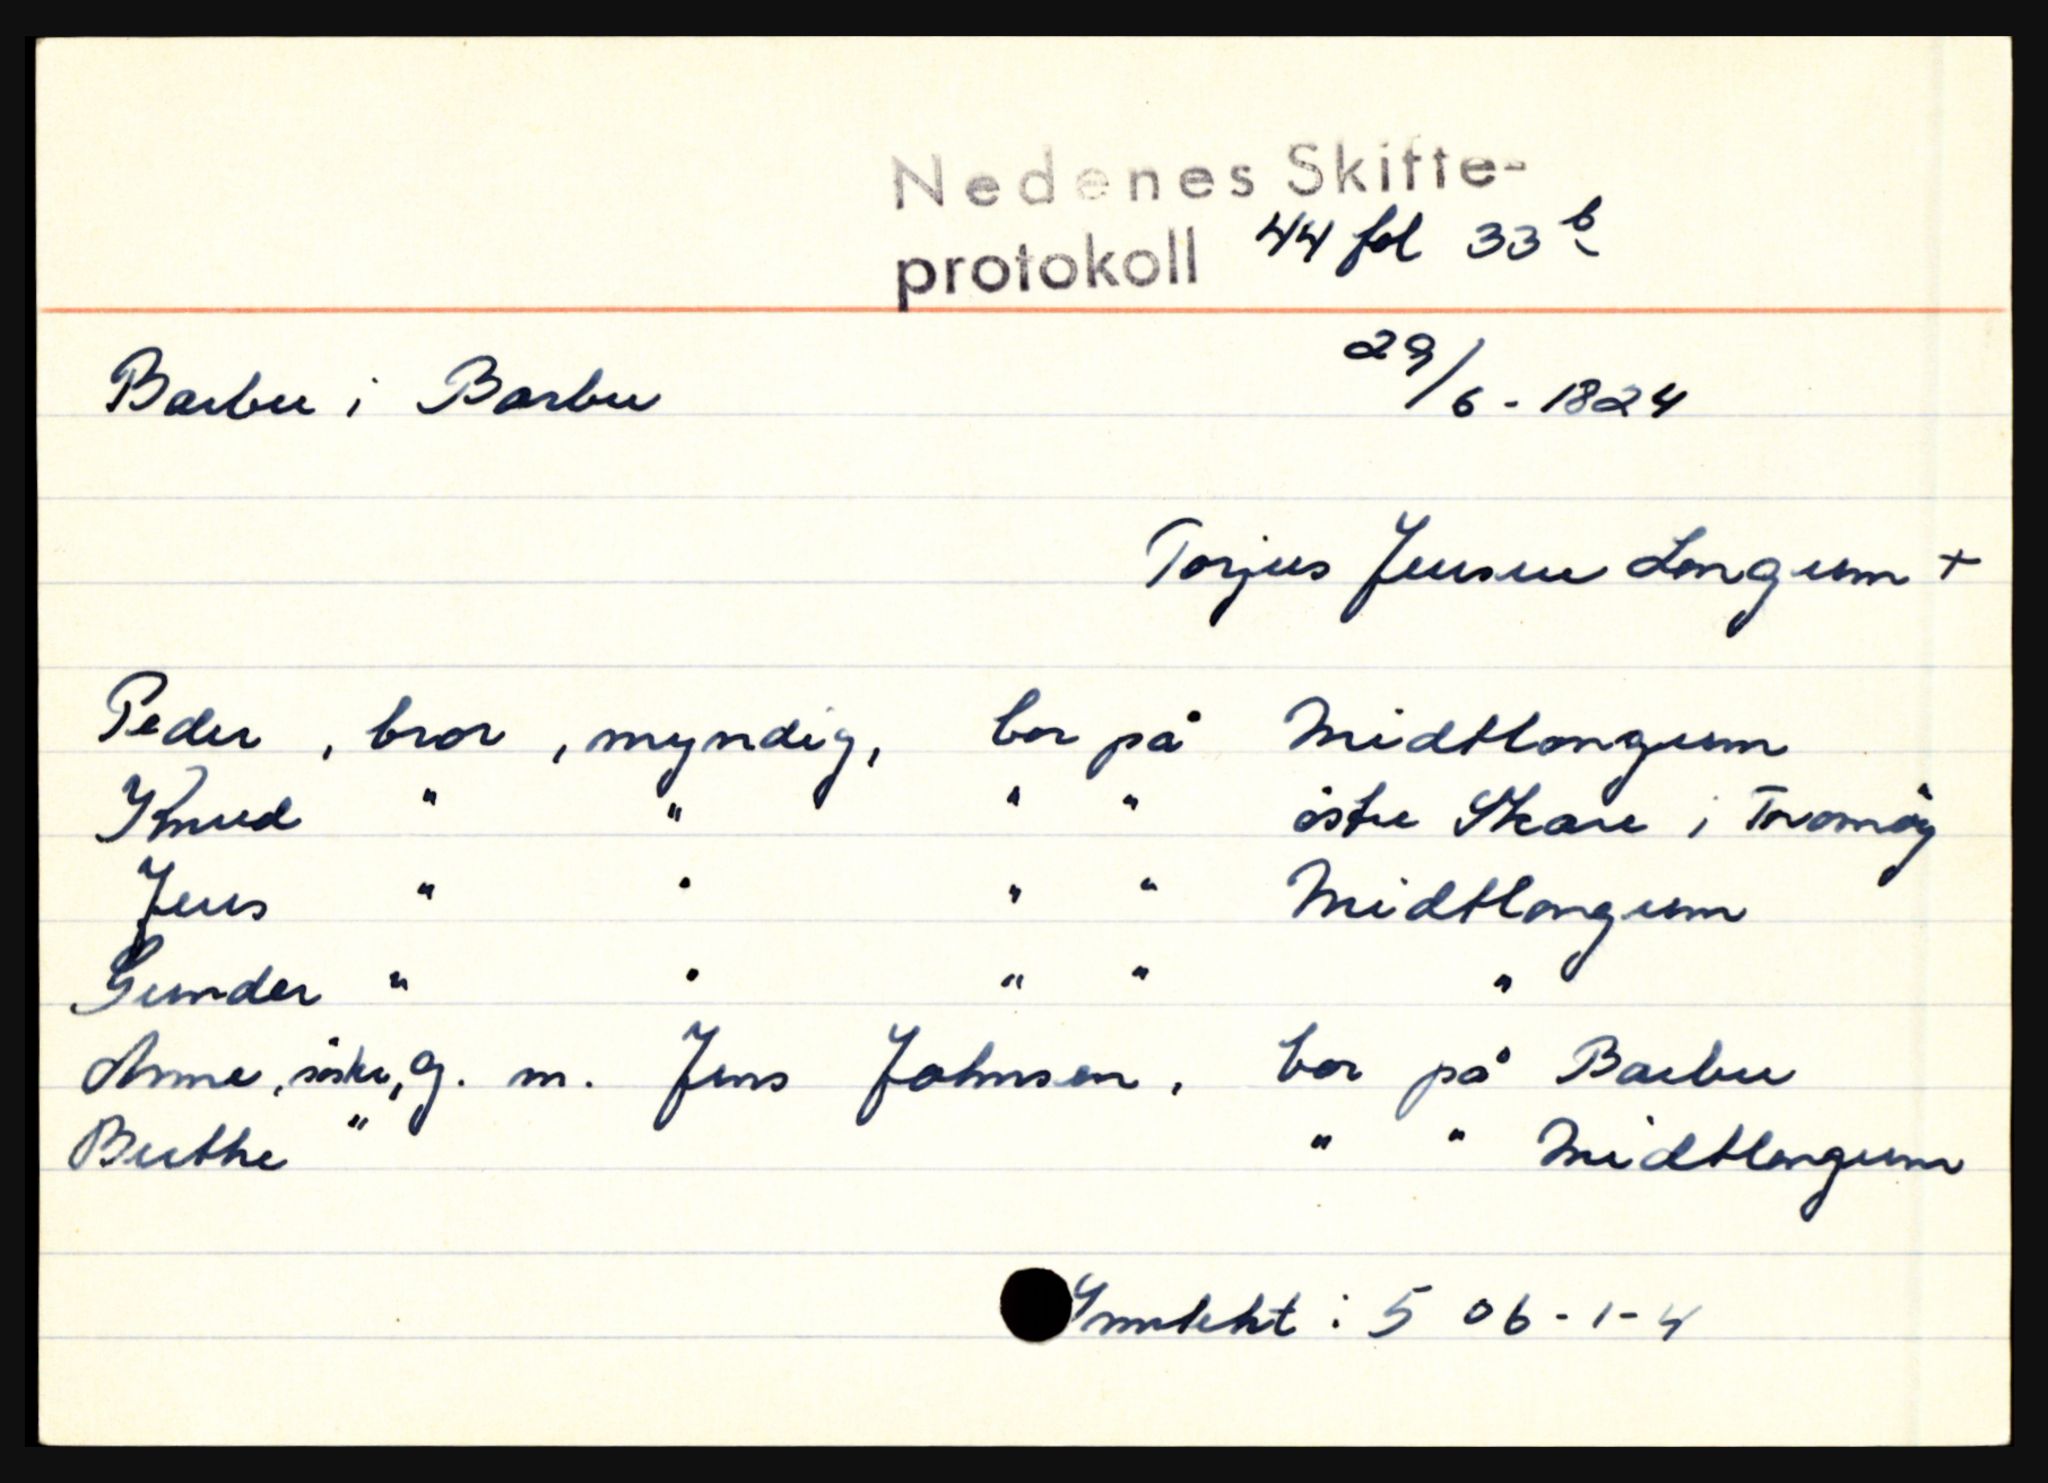 Nedenes Skifte-
protokoll 44 fol 33 b
29/6 - 1824
Barbu i Barbu
Torjus Jensen Longum +
Peder , bror , myndig, bor på Midtlongum
Knud " " " " östre Skare i Tromöy
Jens " " " " Midtlongum
Gunder " " " " "
Anne, söster, g. m. Jens Johnsen, bor på Barbu
Berthe " " " Midtlongum
Inntekt : 5 06 - 1 - 4